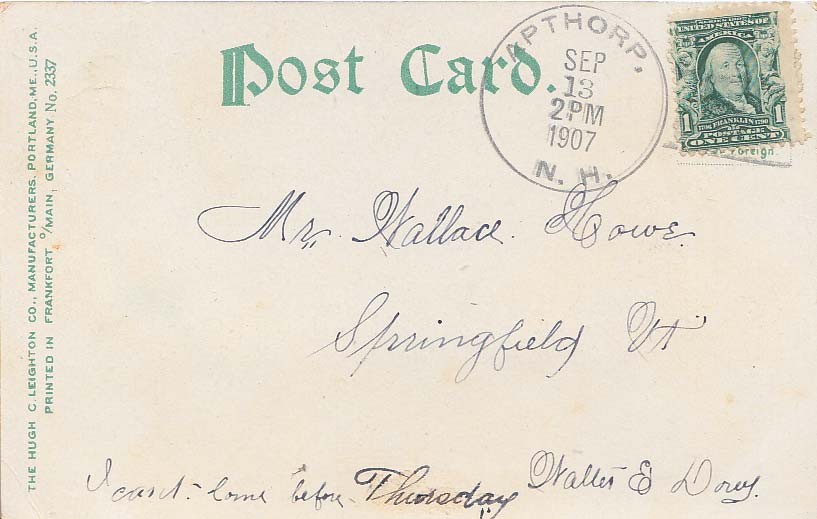 THE HUGH C. LEIGHTON CO., MANUFACTURERS, PORTLAND, ME., U.S.A.
PRINTED IN FRANKFORT º/MAIN, GERMANY. No. 2337
Post Card.
APTHORP,
SEP
13
2PM
1907
N. H.
SERIES 1902
UNITED STATES OF
AMERICA
1 1706 FRANKLIN 1790 1
POSTAGE
ONE CENT
Foreign.
Mr. Wallace. Howe.
Springfield Vt
I can't come before Thursday Walter E